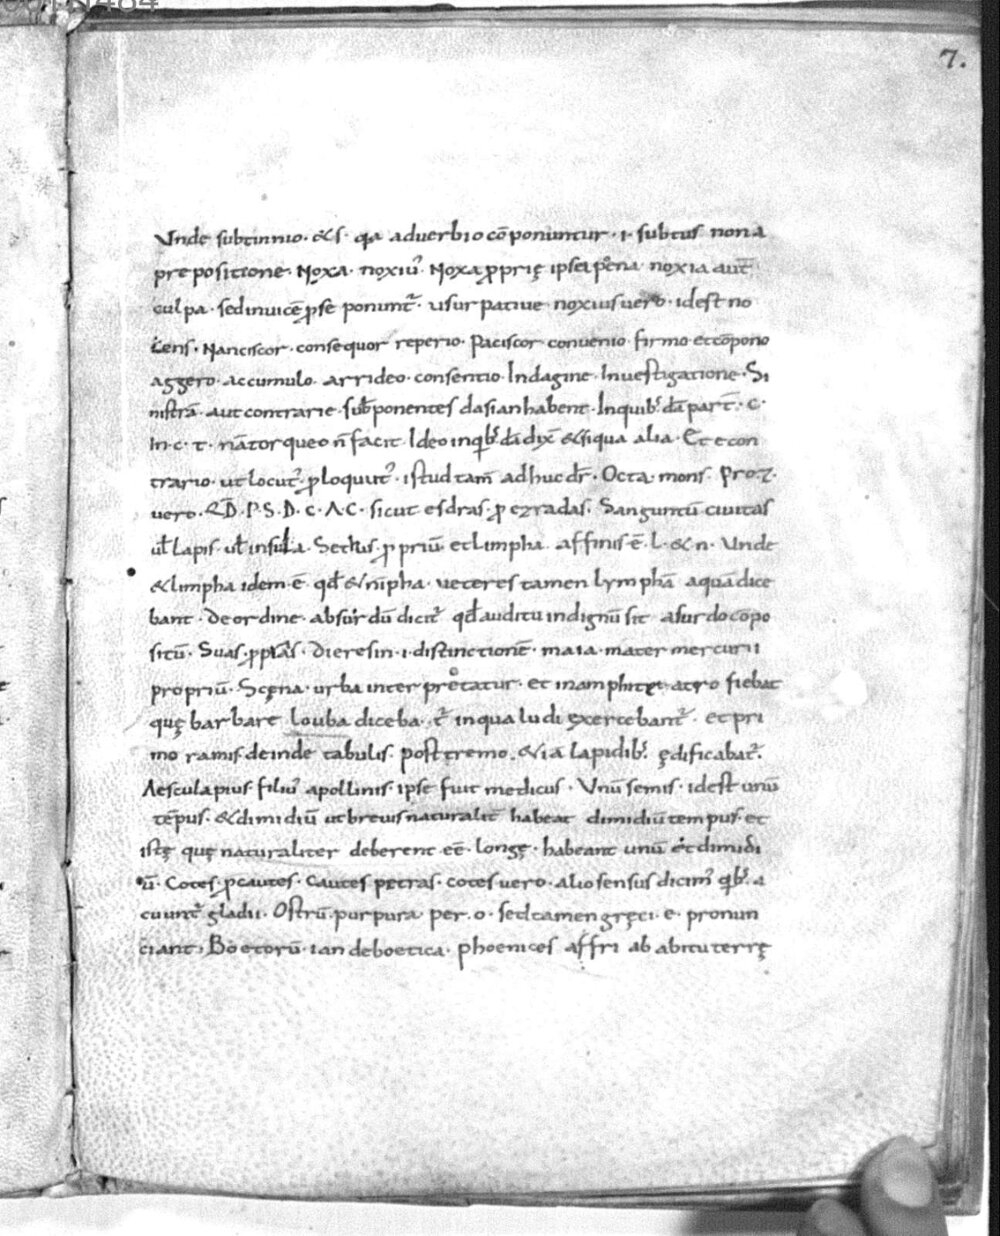 7.
Vnde subtinnio · &s · qa aduerbio cōponuntur · i · subtus non a
prepositione · Noxa · noxiū · Noxa ꝓprię ipsa pena noxia aut̄
culpa · sed inuicē ꝓ se ponunt᷑ · usurpatiue noxius uero · id est no
cens · Nanciscor · consequor reperio · Paciscor conuenio firmo et cōpono
aggero · accumulo · arrideo · consentio · Indagine · Inuestigatione · Si
nistrā · aut contrarie · subponentes dasian habent · In quib; dā part̄ · c ·
In · c · t · nā torqueo n̄ facit · Ideo in qb; dā dix̄ & siqua alia · Et econ
trario · ut locut᷑ · ꝓ loquut᷑ · istud tam̄ adhuc dr̄ · Octa · mons · Pro · z ·
uero · D̄ · P · S · D · c · A · C · sicut esdras · ꝓ ezradas · Sanguntū ciuitas
ul̄ lapis · ul̄ insula · Sechis · ꝓpriū · et limpha · affinis ē · l · & n · Vnde
& limpha idem · ē · qd̄ & nīpha · ueteres tamen lymphā aquā dice
bant · De ordine · absurdū dicit᷑ qd̄ auditu indignū sit a surdo cōpo
situ᷑ · Suas · ꝓptās · Dieresin · i · distinctionē · maia · mater mercurii
propriū · Scęna · urba interpretatur · et in amphiteatro fiebat
quę barbare louba diceba · t᷑ in qua ludi exercebant᷑ · et pri
mo ramis deinde tabulis · post tremo · & iā lapidib; ędificabat᷑ ·
Aesculapius filiu᷑ apollinis · ipse fuit medicus · Vnū semis · id est unū
tēpus · & dimidiū ut breuis naturalit̄ habeat dimidiū tempus · et
istę quę naturaliter deberent eē · longę · habeant unū et dimidi
ū · Cotes · ꝓ cautes · Cautes petras · cotes uero · alio sensus dicim᷑ qb; a
cuunt᷑ gladii · Ostrū · purpura per · o · sed tamen gręci · e · pronun
ciant · Boetorū · ian de boetica · phoenices affri ab abitu terrę